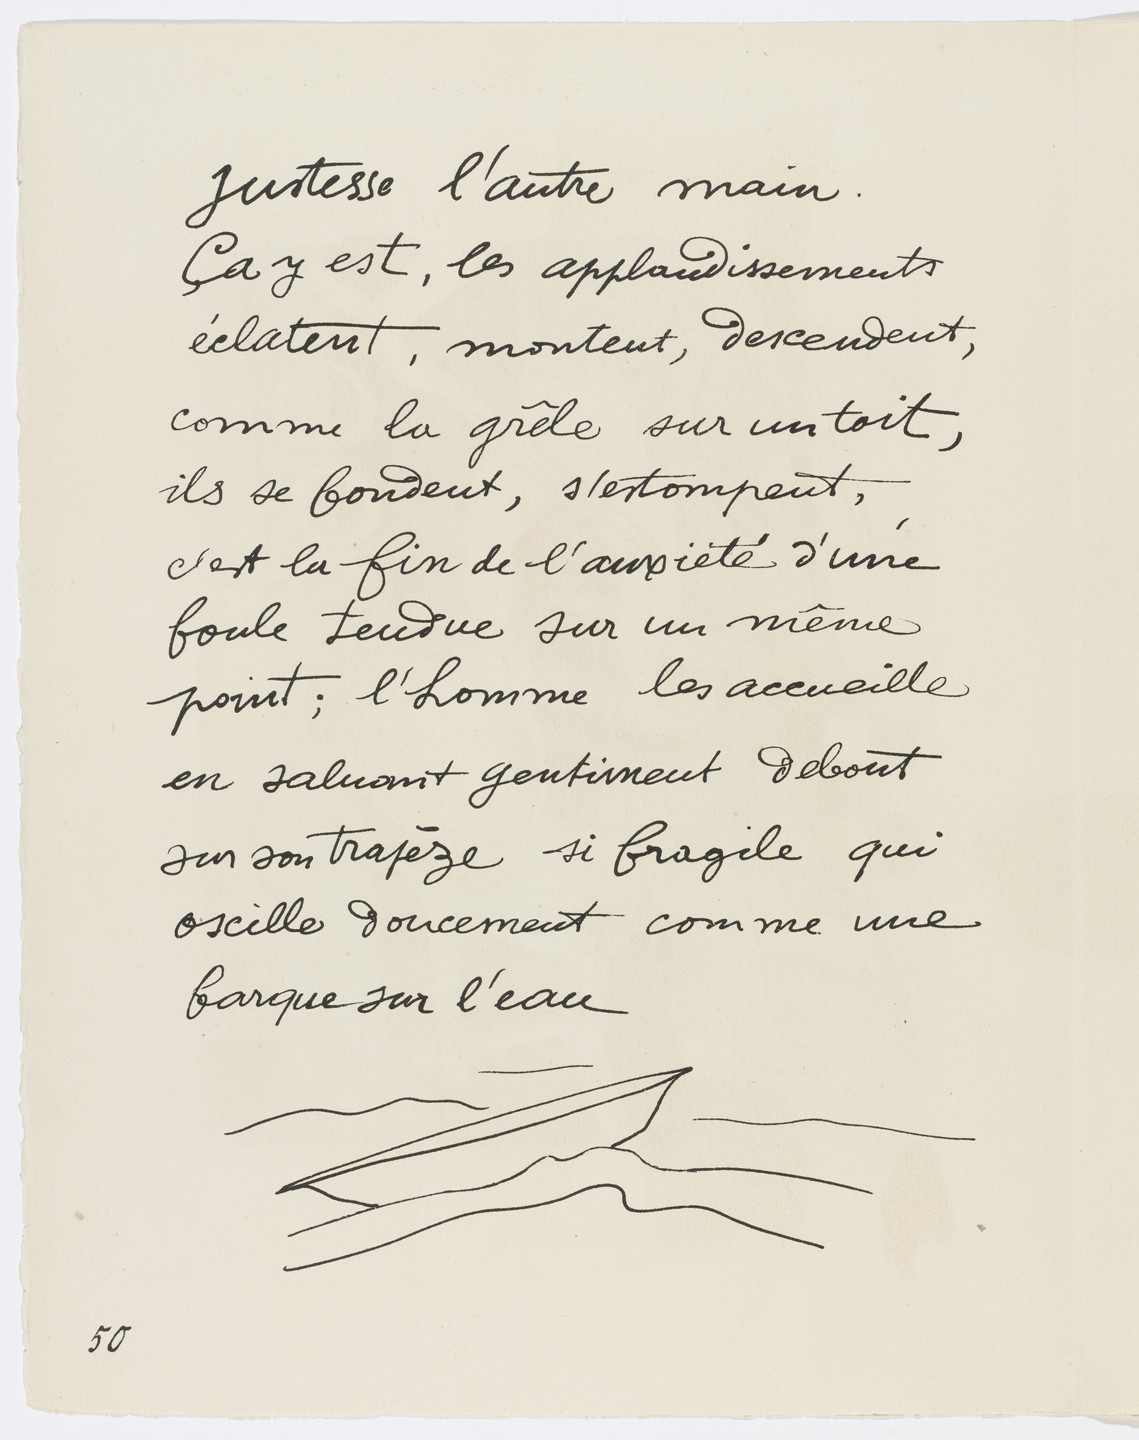 justesse l'autre main.
Ça y est, les applaudissements
éclatent, montent, descendent,
comme la grêle sur un toit,
ils se fondent, s'estompent,
c'est la fin de l'anxiété d'une
foule tendue sur un même
point; l'homme les accueille
en saluant gentiment debout
sur son trapèze si fragile qui
oscille doucement comme une
barque sur l'eau
50